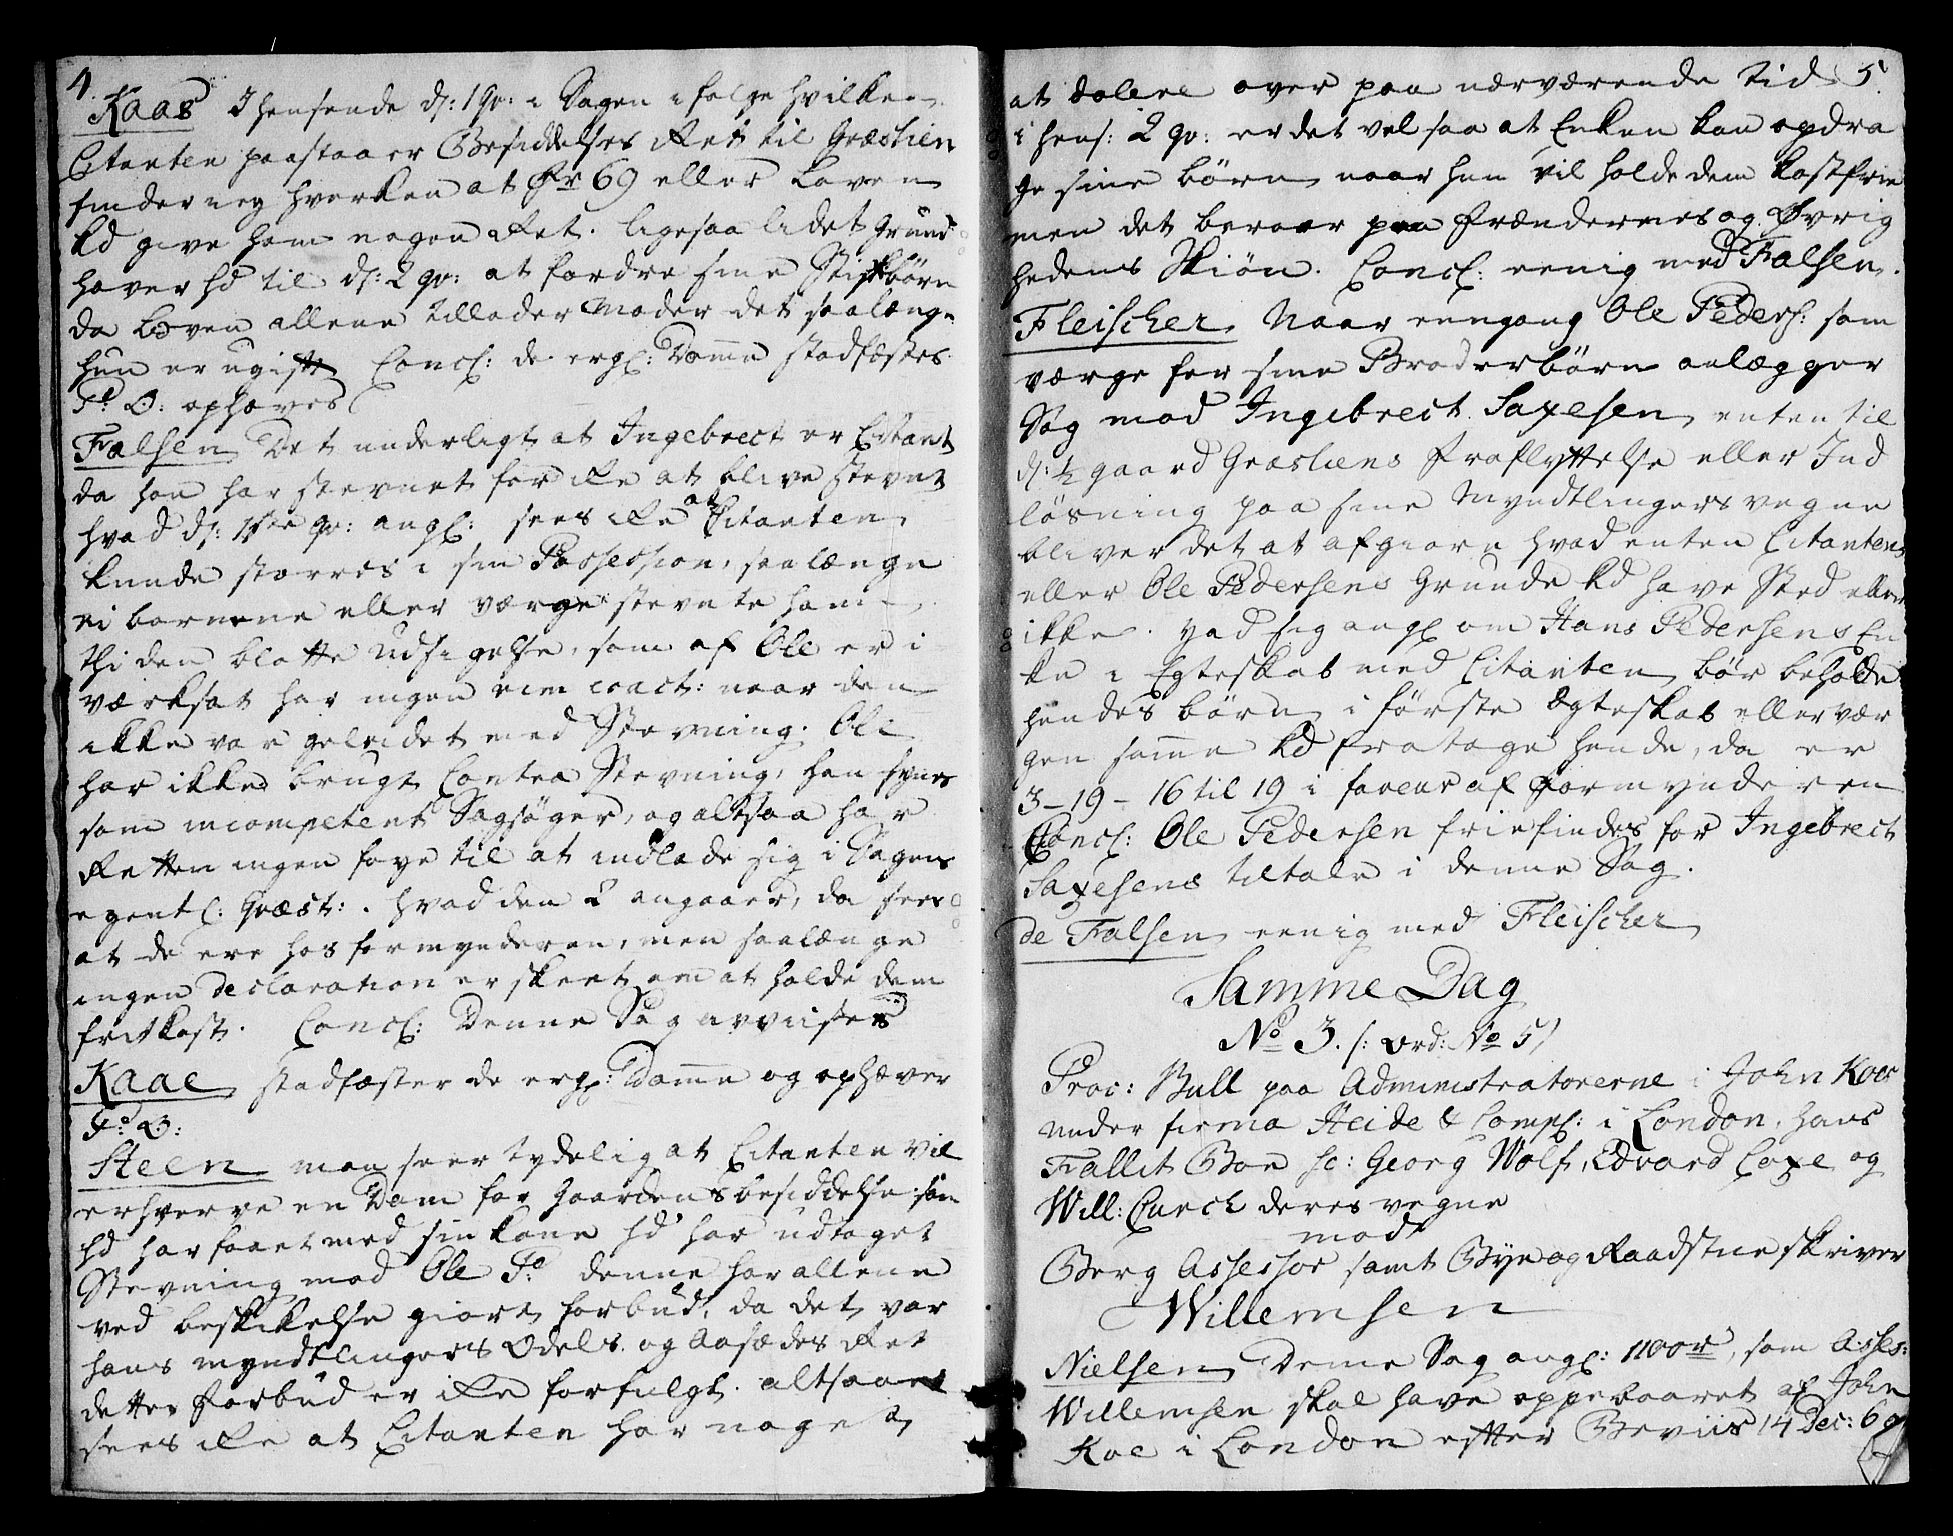 4.
Kaas I henseende d: 1 qv: i Sagen i følge hvilken
Citanten paastaaer Besiddelses Ret til Græslien
finder ieg hverken at Fr 69 eller Loven
kd give ham nogen Ret. ligesaa lidet Grund
haver hd til d: 2 qv: at fordre sine Stifbörn
da Loven allene tillader Moder det saalænge
hun er ugift Concl: de ergl: Domme stadfæstes
F: O: ophæves
Falsen Det underligt at Ingebrect er Citant
da han har stevnet for ikke at blive stevnt
hvad d: 1ste qv: angl: sees ikke at Citanten
kunde storres i sin Possession, saalænge
ei börnene eller værge stevnte ham
thi den blotte Udsigelse, som af Ole er i
værksat har ingen vim coact: naar den
ikke var geleidet med Stevning. Ole
har ikke brugt Contra Stevning, han synes
som incompetent Sagsöger, og altsaa har
Retten ingen føye til at indlade sig i Sagens
egentl: Qvæst:. hvad den 2 angaaer, da sees
at de ere hos formynderen, men saalænge
ingen declaration er skeet om at holde dem
frit kost. Concl: Denne Sag avviises
Kaae stadfæster de ergl: Domme og ophæver
F: O:
Steen man seer tydelig at Citanten vil
erhverve en Dom for Gaardens besiddelse som
hd har faaet med sin kone hd har udtaget
Stevning mod Ole P: denne har allene
ved beskikelse giort forbud, da det var
hans myndtlingers Odels og Aasædes Ret
dette Forbud er ikke forfulgt. altsaa
sees ikke at Citanten har noget
5.
at dolere over paa nærværende tid
i hens: 2 qv: er det vel saa at Enken kan opdra
ge sine börn naar hun vil holde dem kostfrie
men det beroer paa Frændernes og Øvrig
hedens Skiön. Concl: eenig med Falsen.
Fleischer. Naar eengang Ole Peders: som
værge for sine Broderbörn anlægger
Sag mod Ingebrect Saxesen enten til
d: ½ gaard Græsliens fraflyttelse eller Ind
lösning paa sine Myndtlingers vegne
bliver det at afgiøre hvad enten Citantens
eller Ole Pedersens Grunde kd have Sted eller
ikke. hvad sig angl om Hans Pedersens En
ke i Egteskab med Citanten bør beholde
hendes börn i første Ægteskab eller vær
gen samme kd fratage hende, da er
3-19-16 til 19 i faveur af Formynderen
Concl: Ole Pedersen friefindes for Ingebrect
Saxesens tiltale i denne Sag.
de Falsen eenig med Fleischer
Samme Dag
No 3. /: ord: No 5/
Proc: Bull paa Administratorerne i John Koes
under firma Heide & Comp: i London, hans
Fallit Boe sc: Georg Wolf, Edvard Coxe og
Will: Curch deres vegne
mod
Berg Assessor samt Bye og Raadstueskriver
Willemsen
Nielsen Denne Sag angl: 1100r, som Asses:
Willemsen skal have oppebaaret af John
Koe i London efter Beviis 14 Dec: 69